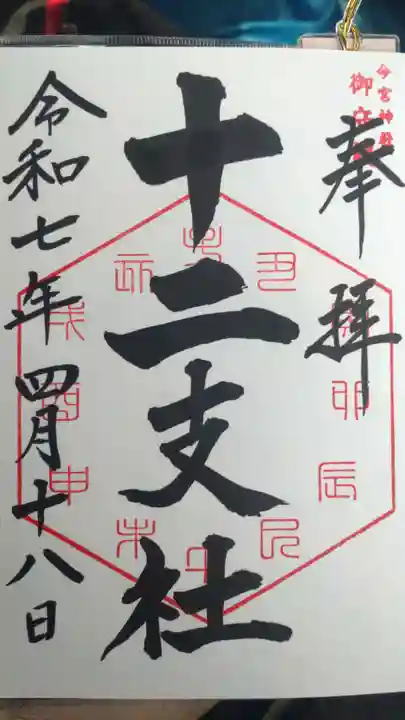 奉拝
十二支社
令和七年四月十八日
今宮神社
御守
丑
卯
辰
巳
午
未
申
酉
戌
亥